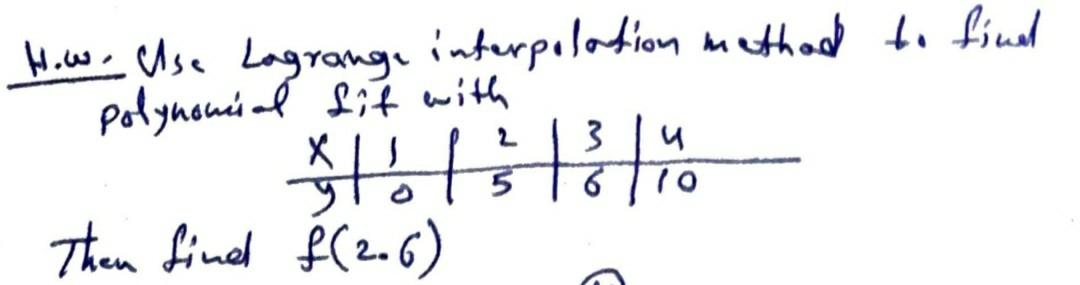 H.w. Use Lagrange interpolation method to find
polynomial fit with
x | 1 | 2 | 3 | 4
y | 0 | 5 | 6 | 10
Then find f(2.6)